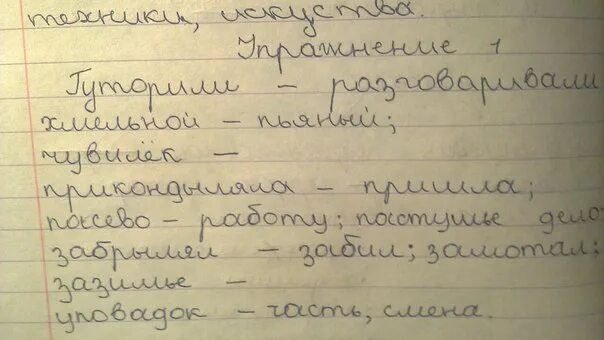 техники, искуства.
Упражнение 1
Гуторили – разговаривали
хмельной – пьяный;
чувилёк –
прикондыляла – пришла;
поксево – работу; пастушье дело
забрылял – забил; замотал;
зазимье –
уповадок – часть, смена.